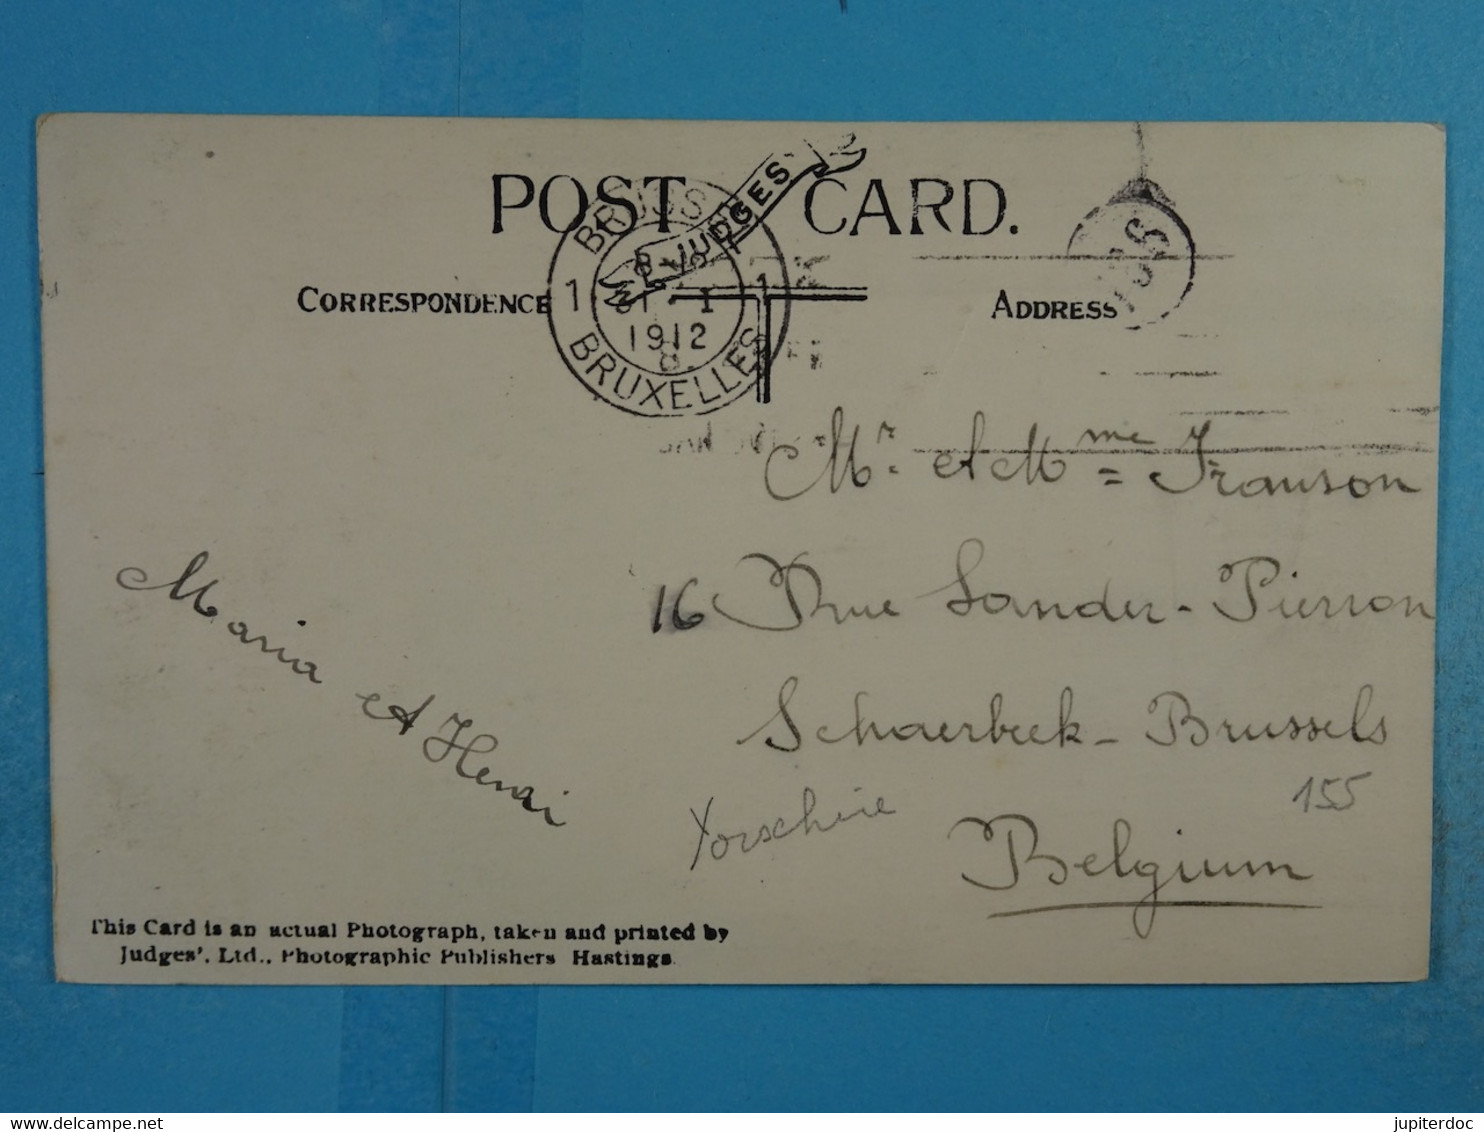 POST CARD.
JUDGES
CORRESPONDENCE
ADDRESS
BRUSSEL
1 1
31 I
1912
BRUXELLES
Mr. et Mme Franson
16 Rue Sander-Pierron
Schaerbeek - Brussels
Belgium
Maria et Henri
Yorschire
155
This Card is an actual Photograph, taken and printed by
Judges', Ltd., Photographic Publishers Hastings.
jupiterdoc